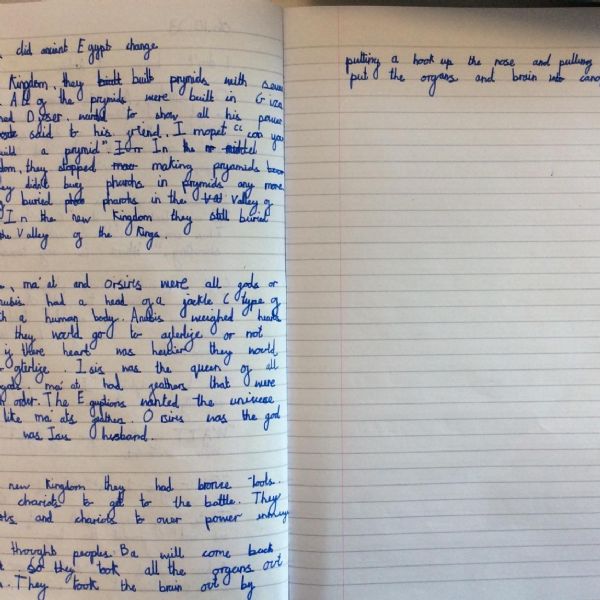 did ancient Egypt change
Kingdom, they built built prymids with
All of the prymids were built in Giza
Djoser. wanted to show all his power
said to his friend, I mopet " can you
a prymid". In In the middel
they stopped making pryamids
didn't bury pharohs in prymids any more
buried pharohs in the Valley of
In the new Kingdom they still buried
the Valley of the Kings.
ma'at and Orsiris were all gods or
had a head of a jackle ( type of
a human body. Anubis weighed hearts
they world go to afterlife or not
if there heart was hevier they world
afterlife. Isis was the queen of all
ma'at had feathers that were
order. The Egyptions wanted the universe
like ma'ats feather. Orsiris was the god
was Isis husband.
new kingdom they had bronze tools.
chariots to get to the battle. They
and chariots to over power enimeys
thought peoples. Ba will come back
so they took all the organs out
They took the brain out by
putting a hook up the nose and pulling
put the organs and brain into